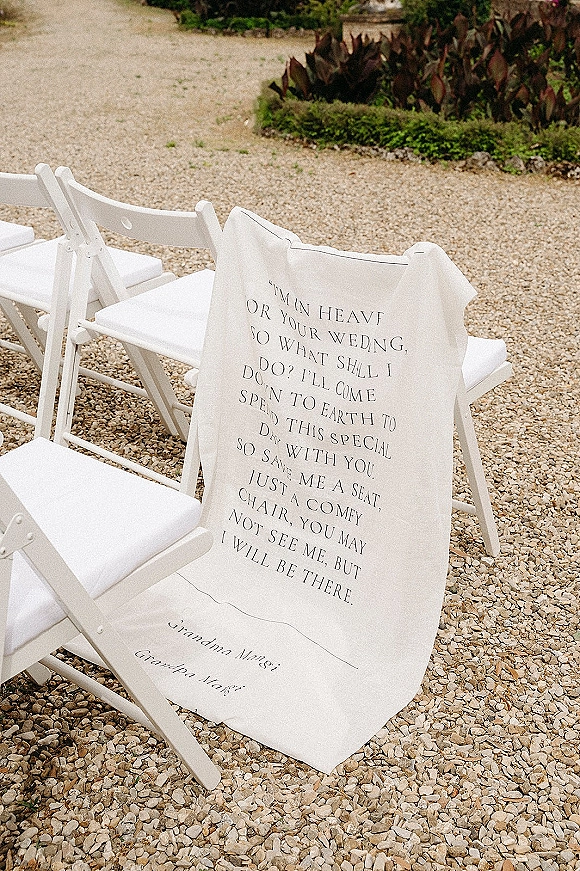 "I'M IN HEAVE
OR YOUR WEDING,
SO WHAT SHLL I
DO? I'LL COME
DOWN TO EARTH TO
SPEND THIS SPECIAL
DAY WITH YOU
SO SAVE ME A SEAT,
JUST A COMFY
CHAIR, YOU MAY
NOT SEE ME, BUT
I WILL BE THERE.
Grandma Margi
Grandpa Maki